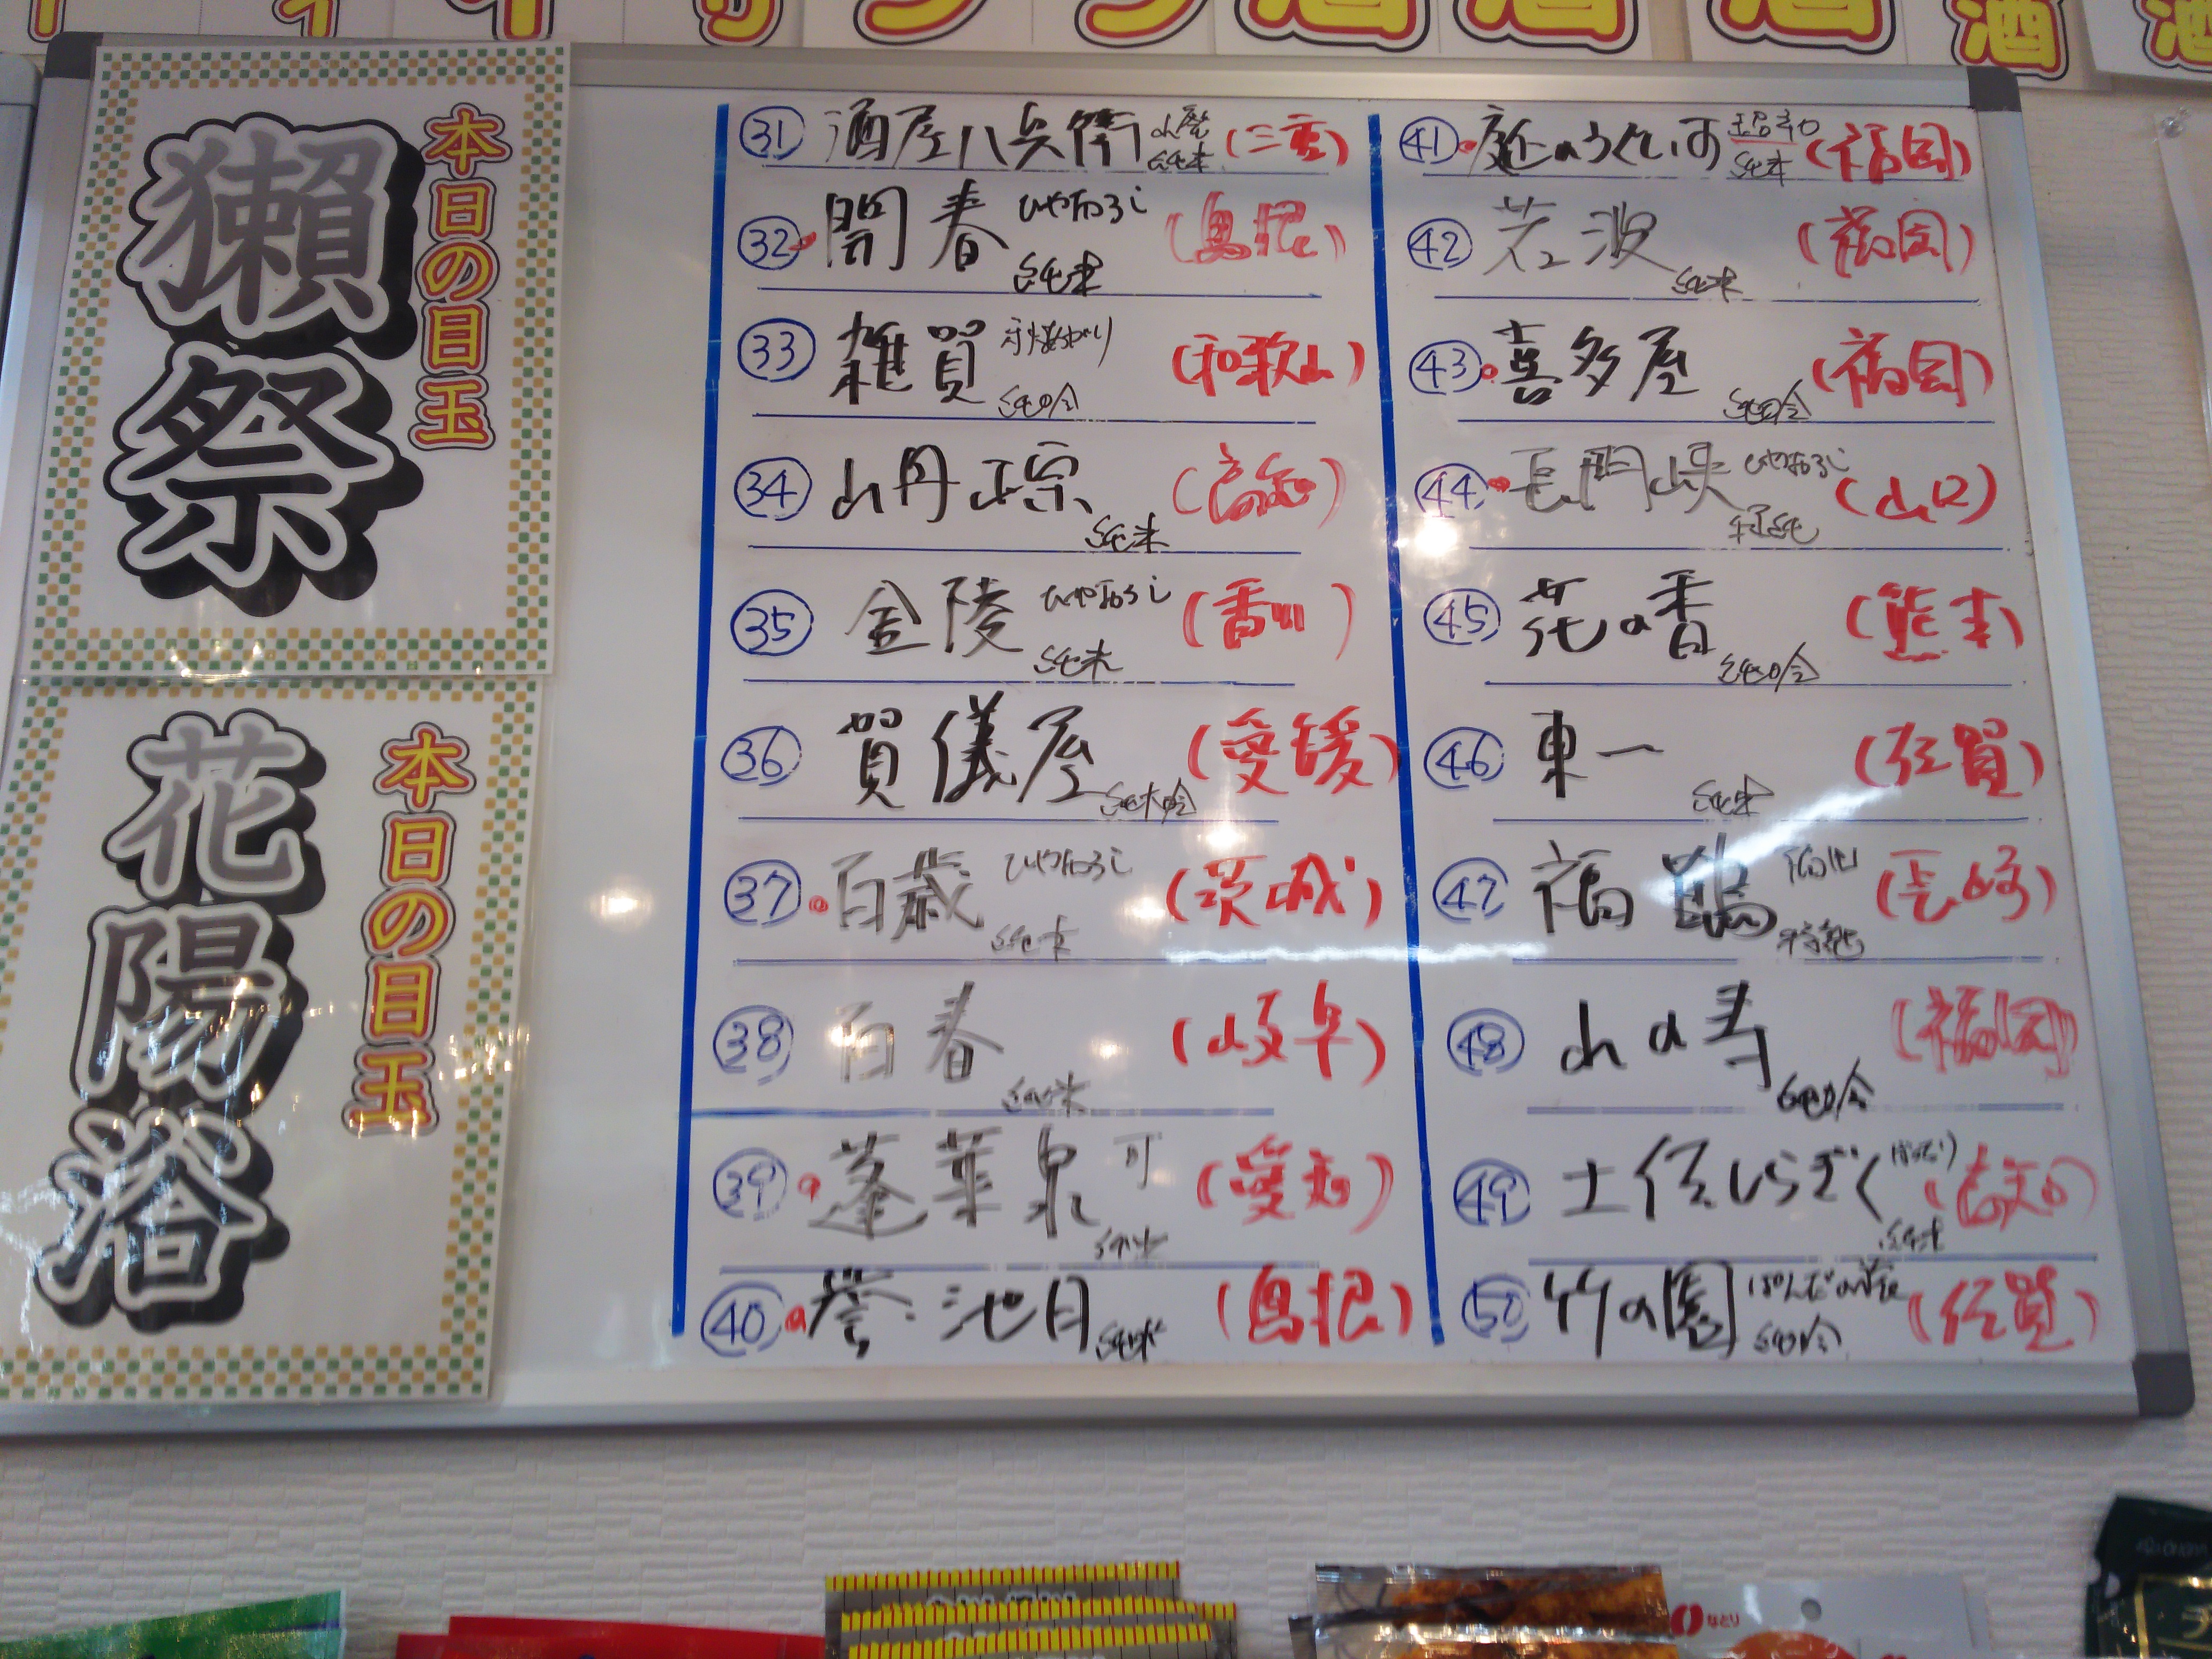 酒
酒
酒
酒
本日の目玉
獺祭
本日の目玉
花陽浴
31 酒屋八兵衛 山廃 純米 (三重)
32 開春 ひやおろし 純米 (島根)
33 雑賀 純吟 (和歌山)
34 山丹正宗 純米 (高知)
35 金陵 ひやおろし 純米 (香川)
36 賀儀屋 純米吟 (愛媛)
37 百歳 ひやおろし 純米 (茨城)
38 百春 純米 (岐阜)
39 蓬莱泉 可 (愛知)
40 誉池月 純米 (島根)
41 庭のうぐいす 純米 (福岡)
42 若波 純米 (福岡)
43 喜多屋 純吟 (福岡)
44 長門峡 ひやおろし (山口)
45 花の香 純吟 (熊本)
46 東一 純米 (佐賀)
47 福鶴 特純 (長崎)
48 山の寿 純吟 (福岡)
49 土佐しらぎく 純米 (高知)
50 竹の園 純吟 (佐賀)
なとり